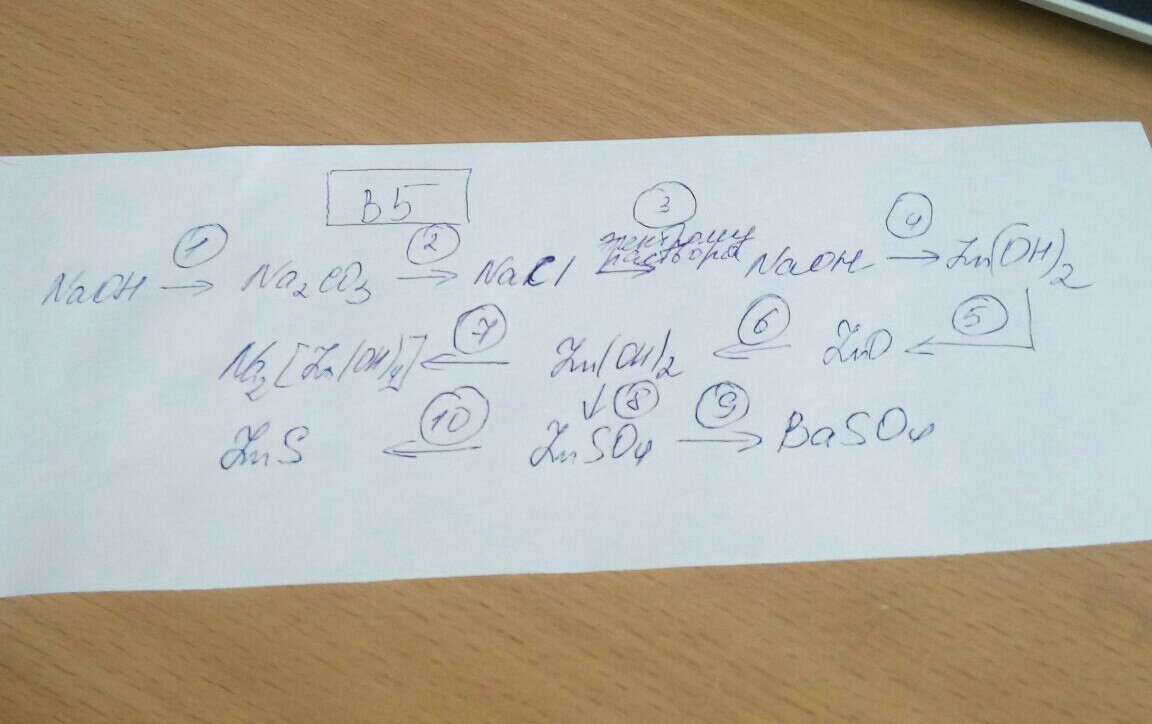 В5
NaOH →① Na₂CO₃ →② NaCl →③ электролиз раствора NaOH →④ Zn(OH)₂
Na₂[Zn(OH)₄] ←⑦ Zn(OH)₂ ←⑥ ZnO ←⑤
↓⑧
ZnS ←⑩ ZnSO₄ →⑨ BaSO₄